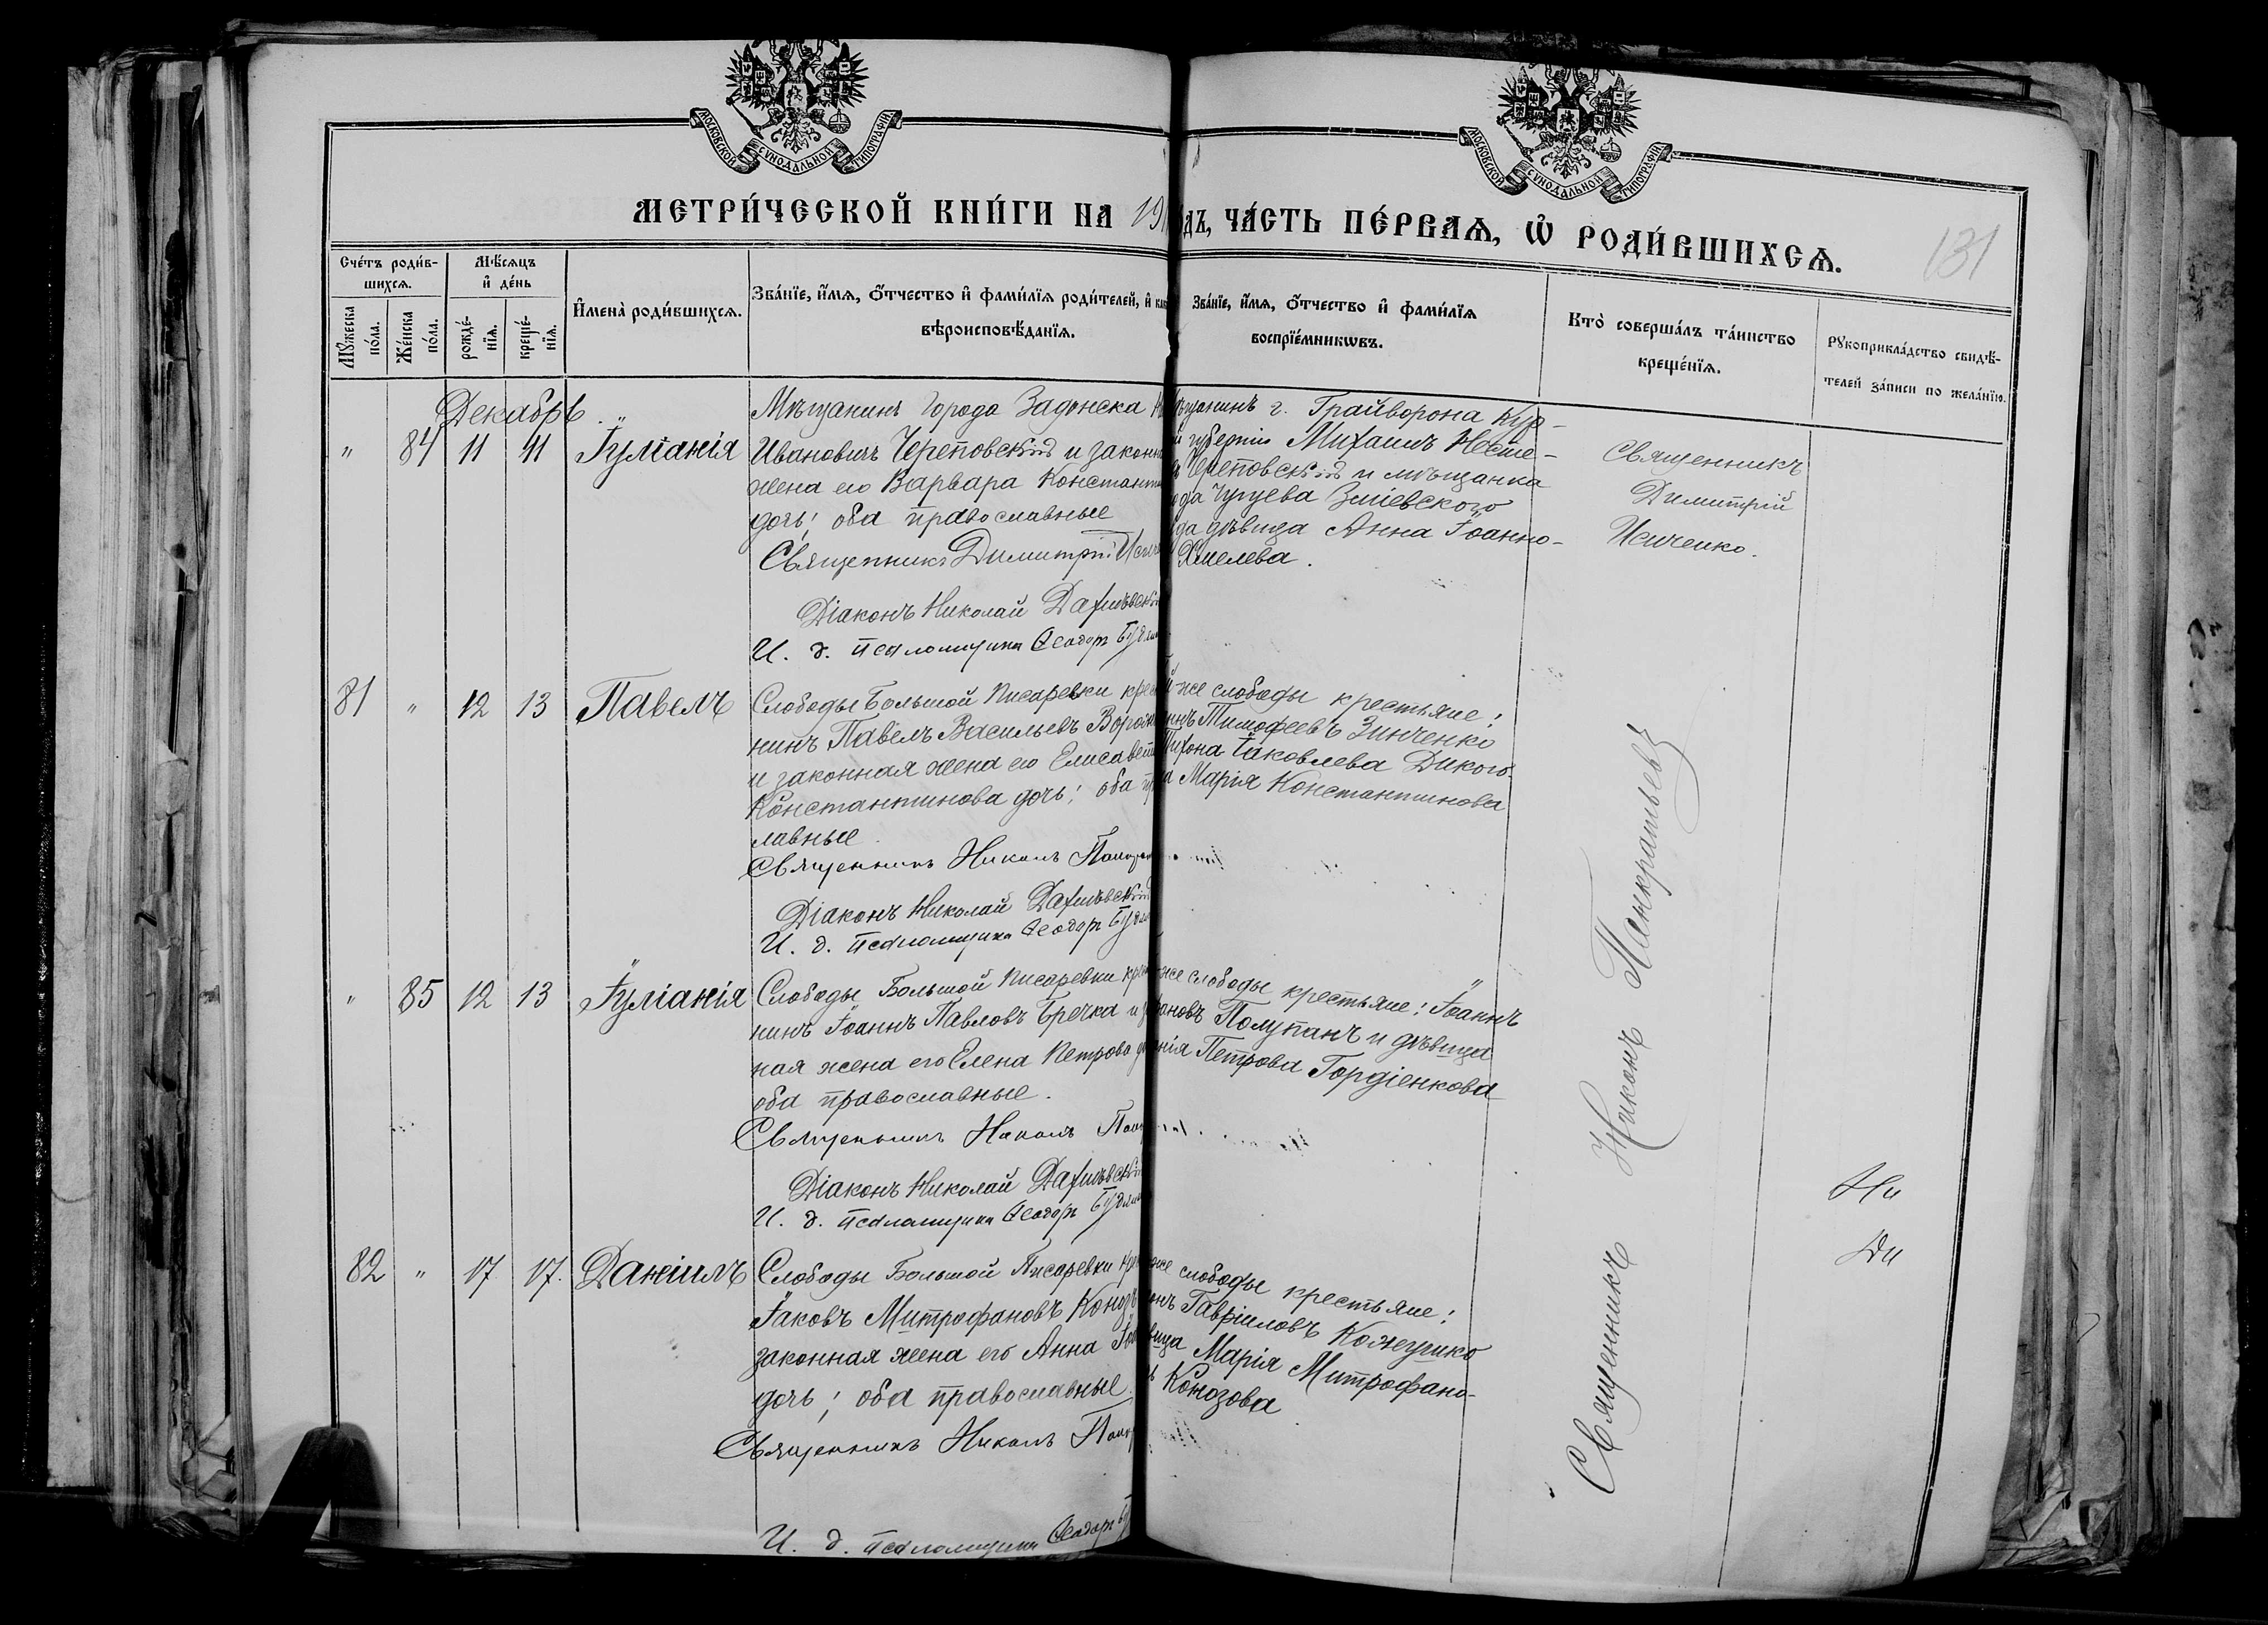 МОСКОВСКОЙ СѴНОДАЛЬНОЙ ТИПОГРАФІИ
МОСКОВСКОЙ СѴНОДАЛЬНОЙ ТИПОГРАФІИ
МЕТРИ́ЧЕСКОЙ КНИ́ГИ НА 19
дъ, ЧА́СТЬ ПЕ́РВАѦ, Ѡ҆ РОДИ́ВШИХСѦ.
131
Сче́тъ роди́в-
шихсѧ.
Мѣ́сѧцъ
и҆ де́нь
Мꙋ́жеска
по́ла.
Же́нска
по́ла.
рожде́-
нїѧ.
креще́-
нїѧ.
И҆мена̀ роди́вшихсѧ.
Зва́нїе, и҆́мѧ, ѻ҆́тчество и҆ фами́лїѧ роди́телей, и҆
вѣроисповѣ́данїѧ.
Зва́нїе, и҆́мѧ, ѻ҆́тчество и҆ фами́лїѧ
воспрїе́мникѡвъ.
Кто̀ соверша́лъ та́инство
креще́нїѧ.
Рꙋкоприкла́дство свидѣ́-
телей за́писи по жела́нїю.
Декабрь
" 84 11 11 Іуліанія
Мѣщанинъ города Задонска
Ивановичъ Череповскій и законн
жена его Варвара Констант
дочь; оба православные
Священникъ Димитрій
Діаконъ Николай
И. д. псаломщика Ѳеодоръ
щанинъ г. Грайворона Кур-
й губерніи Михаилъ Несте-
Череповскій и мѣщанка
ода Чугуева Зміевского
да дѣвица Анна Іоанно-
Хмелева.
Священникъ
Димитрій
Исиченко.
81 " 12 13 Павелъ
Слободы Большой Писаревки крес
нинъ Павелъ Васильевъ
и законная жена его Елисавет
Константинова дочь; оба
лавные
Священникъ Никонъ
Діаконъ Николай
И. д. псаломщика Ѳеодоръ
й-же слободы крестьяне:
инъ Тимофеевъ Зинченко
Тихона Іаковлева Дикого
а Марія Константинова
" 85 12 13 Іуліанія
Слободы Большой Писаревки
нинъ Іоаннъ Павловъ Бречка и
ная жена его Елена Петрова
оба православные.
Священникъ Никонъ
Діаконъ Николай
И. д. псаломщика Ѳеодоръ
же слободы крестьяне: Іоаннъ
ановъ Полупанъ и дѣвица
нія Петрова Гордіенкова
82 " 17 17. Даніилъ
Слободы Большой Писаревки
Іаковъ Митрофановъ
законная жена его Анна
дочь; оба православные
Священникъ Никонъ
И. д. псаломщика Ѳеодоръ
же слободы крестьяне:
онъ Гавріиловъ Кожушко
вица Марія Митрофано-
Конозова
Священникъ Никонъ Панкратьевъ